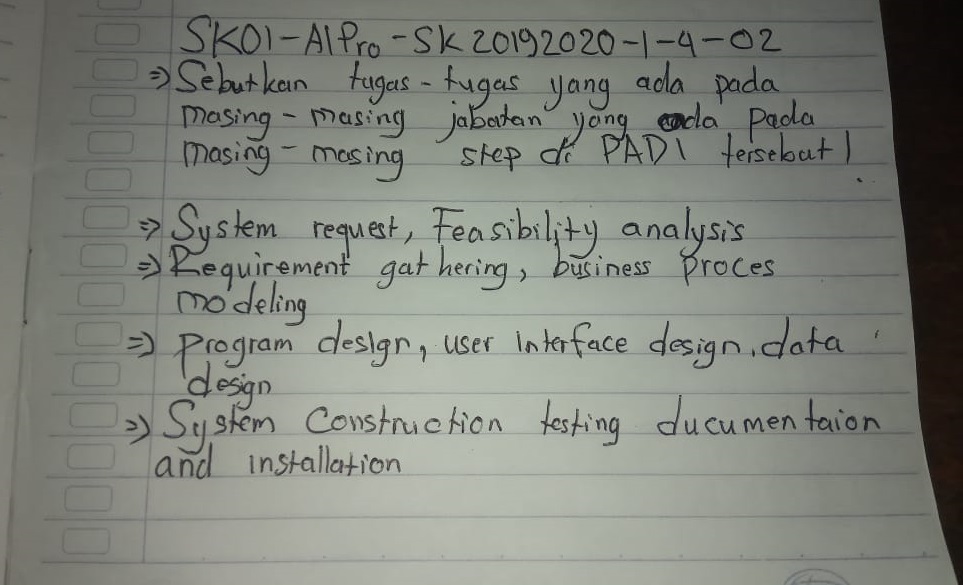 SK01-AlPro-SK20192020-1-4-02
=> Sebutkan tugas-tugas yang ada pada
masing-masing jabatan yang ada pada
masing-masing step di PADI tersebut!
=> System request, Feasibility analysis
=> Requirement gathering, business proces
modeling
=> program design, user interface design, data
design
=> System Construction testing ducumentaion
and installation